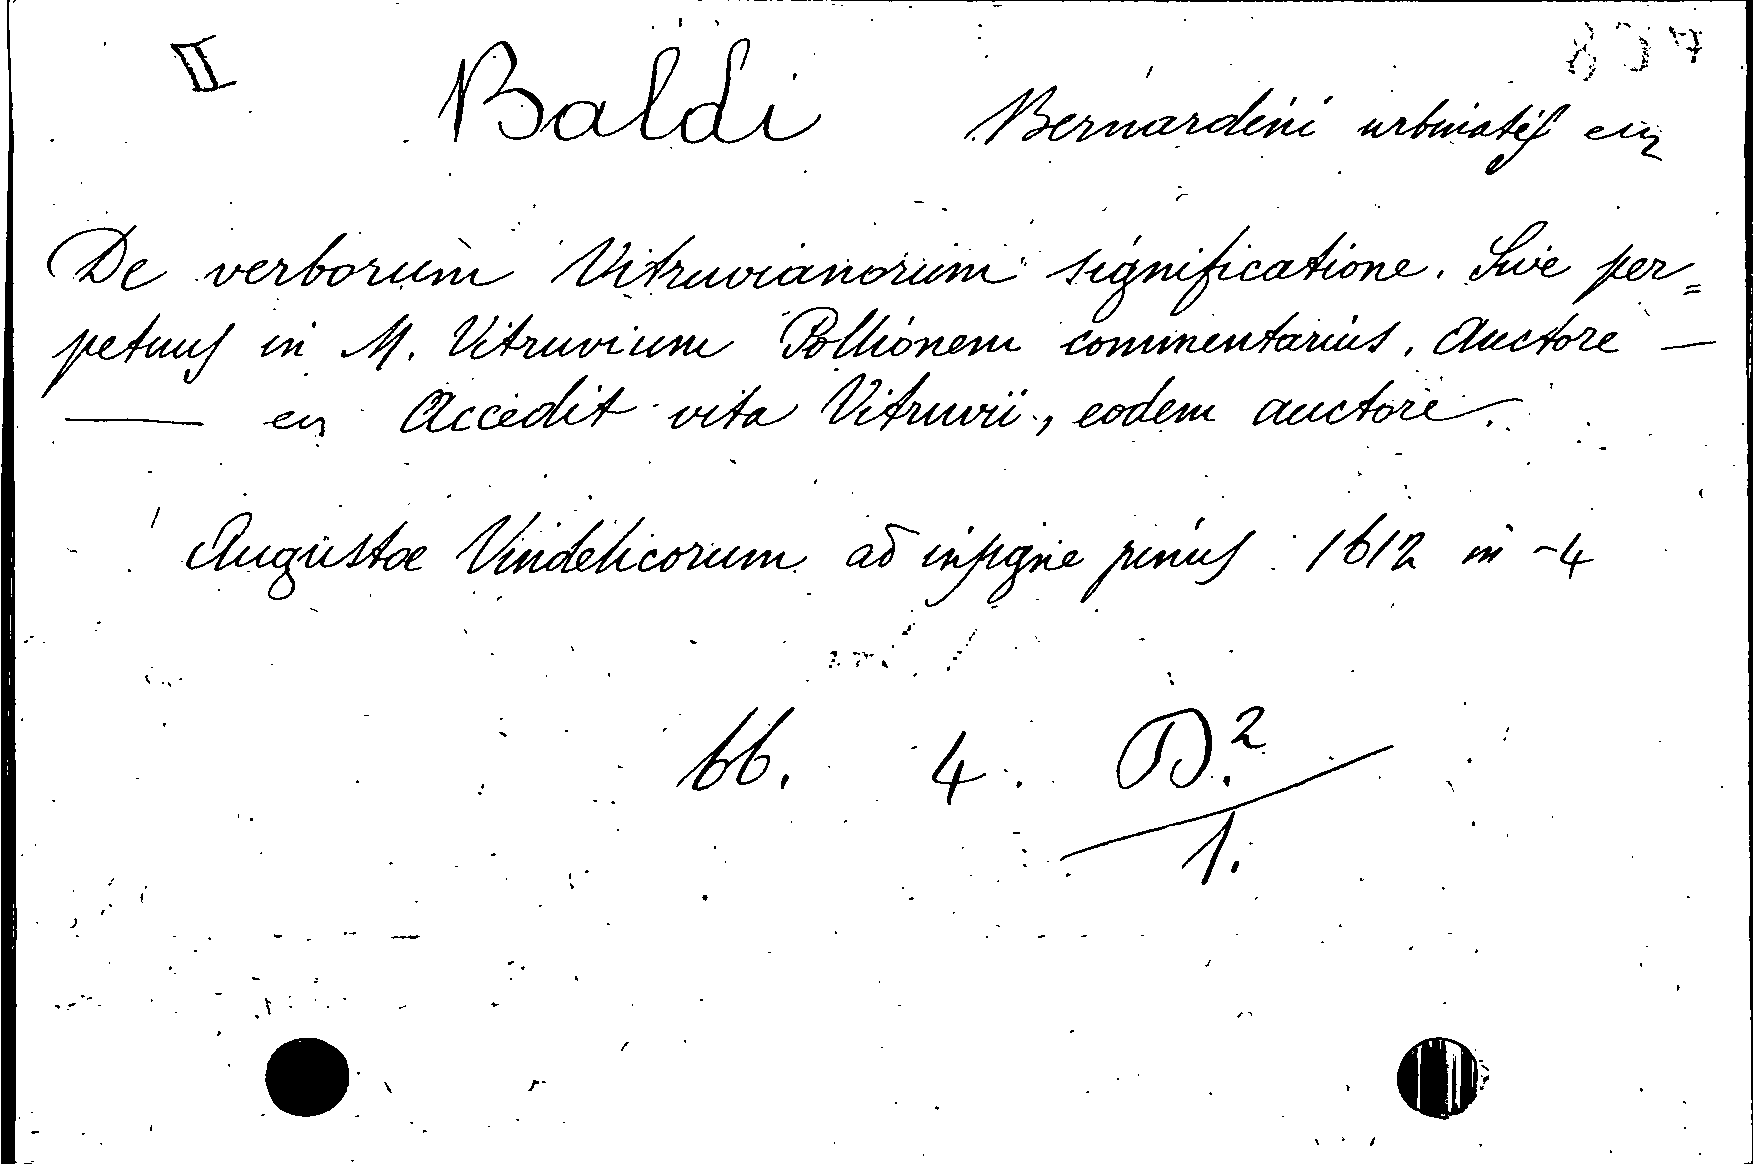 II Baldi Bernardini urbinatis en
De verborum Vitruvianorum significatione. Sive per=
petuus in M. Vitruvium Pollionem commentarius. Auctore —
— en Accedit vita Vitruvii, eodem auctore.
Augustæ Vindelicorum ad insigne pinus 1612 in-4
66. 4. D.2
1.